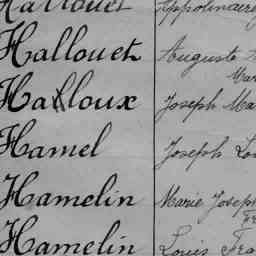 Hallouet
Hallouet Auguste
Mar
Halloux Joseph Ma
Hamel Joseph Lou
Hamelin Marie Joseph
Fr
Hamelin Louis Fra